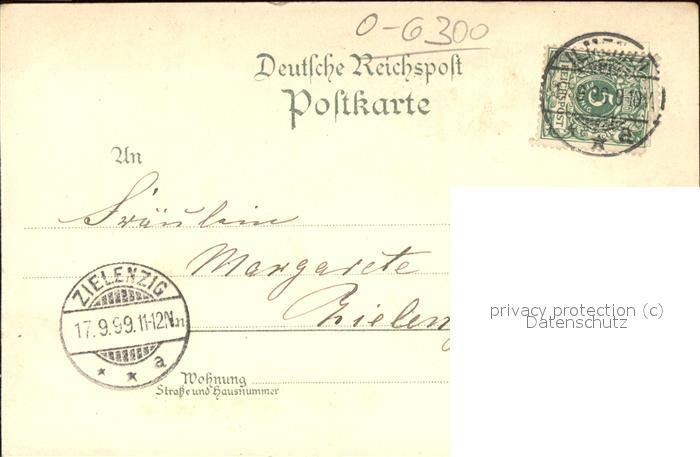 O-6300
Deutsche Reichspost
Postkarte
REICHSPOST
5
a
An
Fräulein
Margarete
Zielenz
ZIELENZIG
17.9.99.11-12N.
a
Wohnung
Straße und Hausnummer
privacy protection (c)
Datenschutz